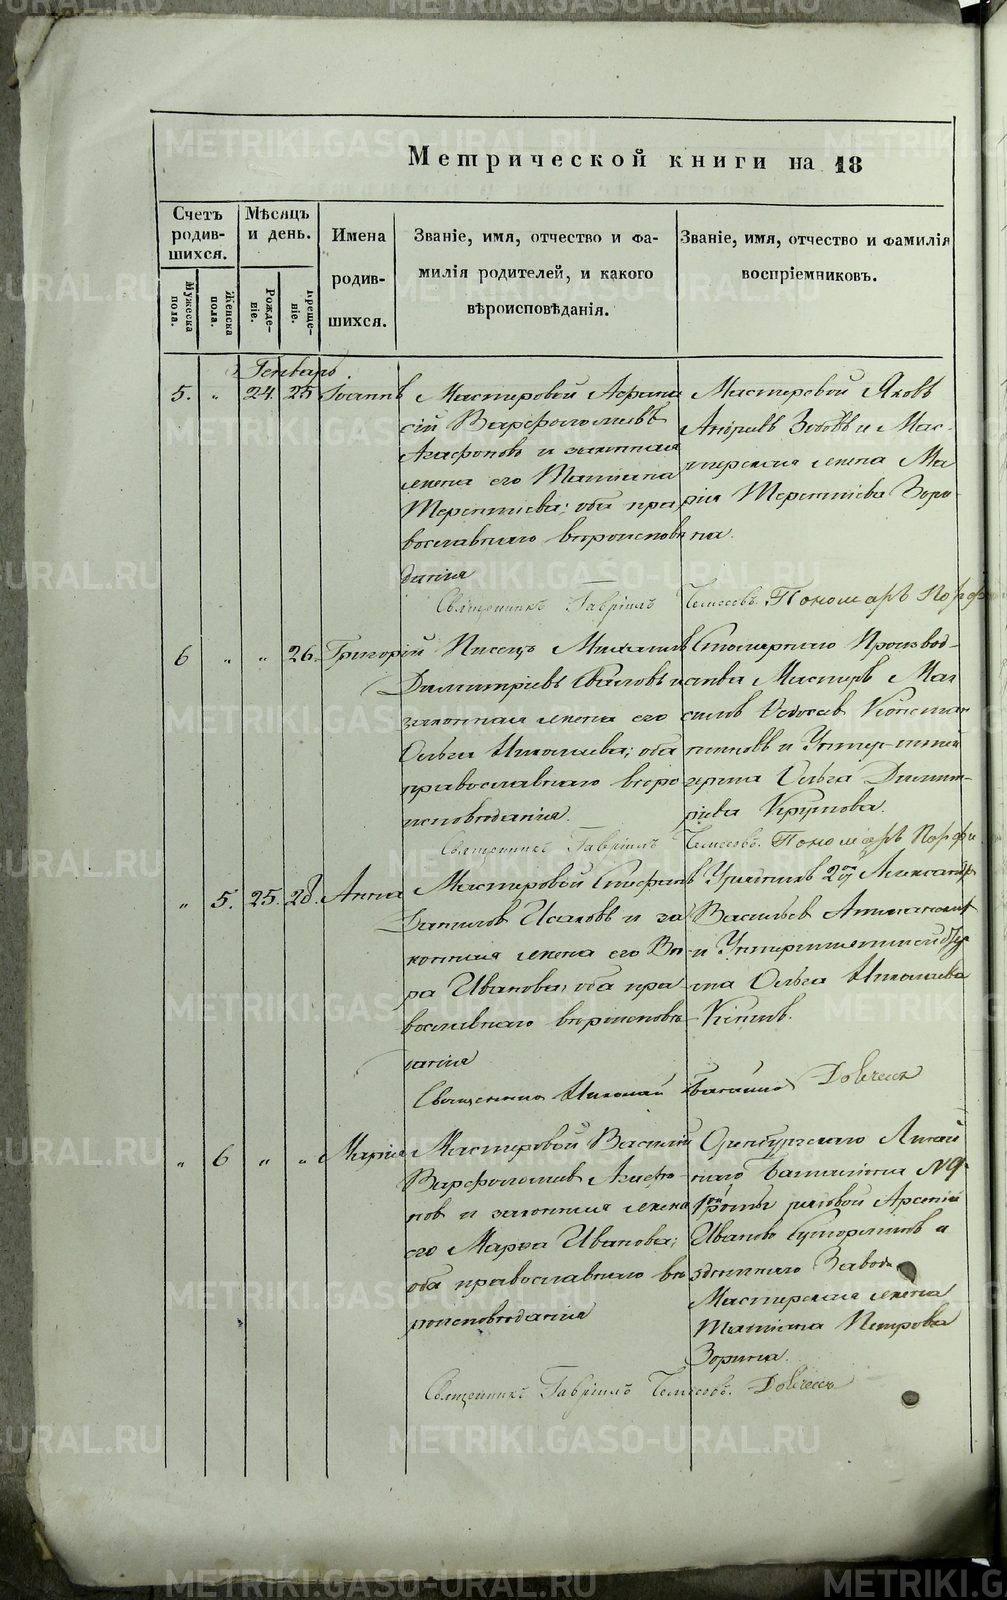 Метрической книги на 18
Счетъ родив-шихся.
Мужеска пола.
Женска пола.
Мѣсяцъ и день.
Рожде-ніе.
Креще-ніе.
Имена
родив-
шихся.
Званіе, имя, отчество и фа-
милія родителей, и какого
вѣроисповѣданія.
Званіе, имя, отчество и фамилія
воспріемниковъ.
Генварь.
5. " 24. 25 Іоаннъ
Мастеровой Афана
сій Варфоломѣевъ
Агафоновъ и законная
жена его Татіана
Терентіева; оба пра
вославнаго вѣроисповѣ
данія
Мастеровой Яковъ
Андреевъ Зобовъ и Мас-
терская жена Ма
рія Терентіева Зоры-
на.
Священникъ Гавріилъ Пономарь Порф
6 " " 26. Григорій
Писецъ Михаилъ
Димитріевъ и
законная жена его
Ольга Николаева; оба
православнаго вѣро
исповѣданія.
Столярнаго Производ-
ства Мастеръ
Константи
новъ и
Ольга Димит-
ріева Крупова.
Священникъ Гавріилъ Пономарь Порфи
" 5. 25. 28. Анна
Мастеровой Стефанъ
Даниловъ Исаковъ и за
конная жена его Вѣ
ра Иванова; оба пра
вославнаго вѣроисповѣ
данія
2й Александръ
Васильевъ
и
Ольга Николаева
Священникъ Николай
" 6 " " Марія
Мастеровой Василій
Варфоломѣевъ Агафо
новъ и законная жена
его Марѳа Иванова;
оба православнаго вѣ
роисповѣданія
Оренбургскаго Линѣй
наго Баталіона №9.
роты рядовой Арсеній
Ивановъ и
здѣшняго Завода
Мастерская жена
Татіана Петрова
Зорина.
Священникъ Гавріилъ
METRIKI.GASO-URAL.RU